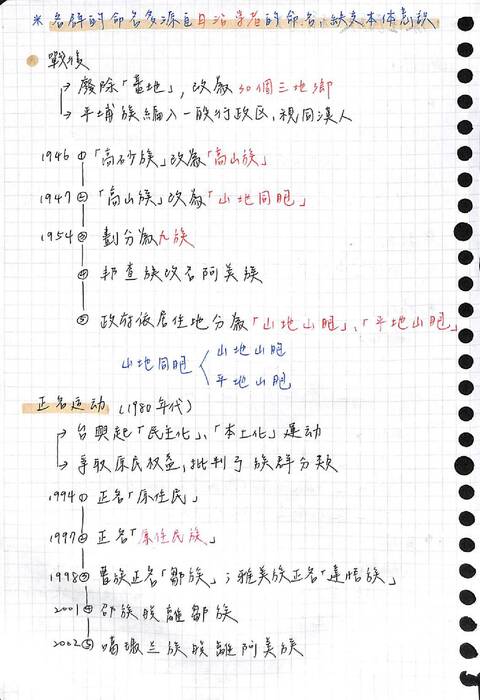 * 各群的命名多源自日治學者的命名,缺乏本体意識
戰後
→ 廢除「蕃地」,改為30個三地鄉
→ 平埔族編入一般行政区,視同漢人
1946 ① 「高砂族」改為「高山族」
1947 ② 「高山族」改為「山地同胞」
1954 ③ 劃分為九族
④ 邦查族改名阿美族
⑤ 政府依居住地分為「山地山胞」、「平地山胞」
山地同胞 < 山地山胞
平地山胞
正名运动 (1980年代)
→ 台興起「民主化」、「本土化」運动
→ 爭取原民权益,批判 族群分类
1994 ① 正名「原住民」
1997 ② 正名「原住民族」
1998 ③ 曹族正名「鄒族」;雅美族正名「達悟族」
2001 ④ 邵族脫離鄒族
2002 ⑤ 噶瑪兰族脫離阿美族